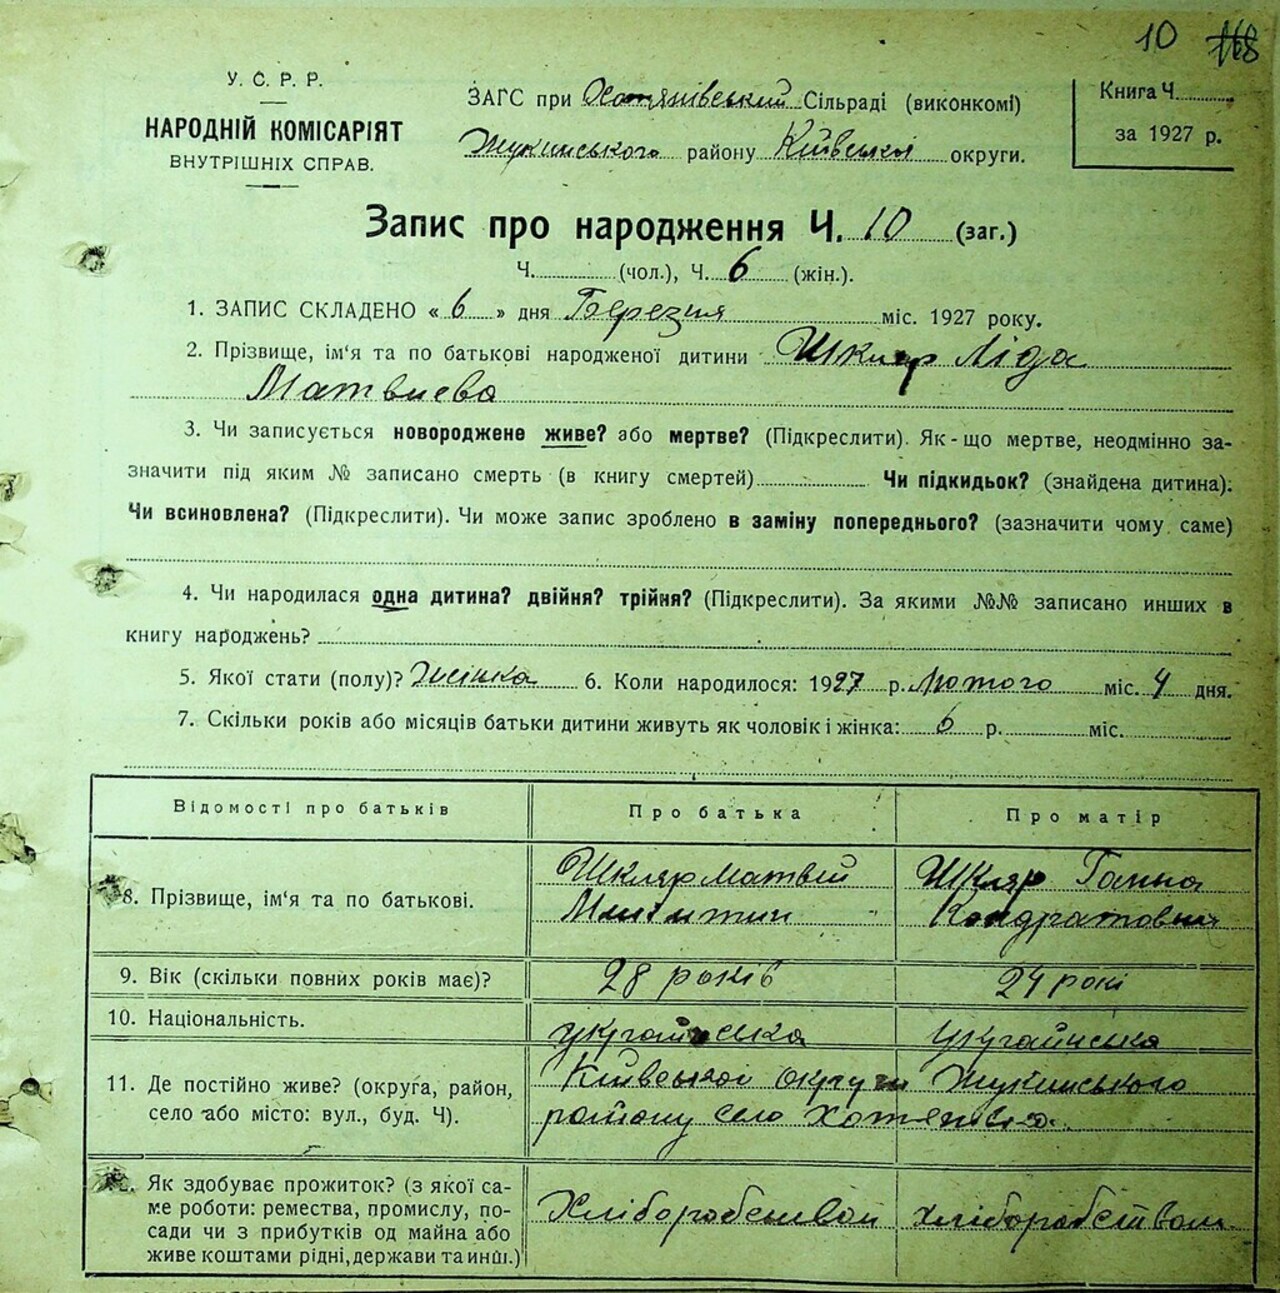 10 168
У. С. Р. Р.
НАРОДНІЙ КОМІСАРІЯТ
ВНУТРІШНІХ СПРАВ.
ЗАГС при Хотянівський Сільраді (виконкомі)
Жукинського району Київської округи.
Книга Ч.
за 1927 р.
Запис про народження Ч. 10 (заг.)
Ч. (чол.), Ч. 6 (жін.).
1. ЗАПИС СКЛАДЕНО « 6 » дня Березня міс. 1927 року.
2. Прізвище, ім'я та по батькові народженої дитини Шкляр Ліда
Матвиева
3. Чи записується новороджене живе? або мертве? (Підкреслити). Як-що мертве, неодмінно за-
значити під яким № записано смерть (в книгу смертей) Чи підкидьок? (знайдена дитина):
Чи всиновлена? (Підкреслити). Чи може запис зроблено в заміну попереднього? (зазначити чому саме)
4. Чи народилася одна дитина? двійня? трійня? (Підкреслити). За якими №№ записано инших в
книгу народжень?
5. Якої стати (полу)? Жінка 6. Коли народилося: 1927 р. Лютого міс. 4 дня.
7. Скільки років або місяців батьки дитини живуть як чоловік і жінка: 6 р. міс.
Відомості про батьків
Про батька
Про матір
8. Прізвище, ім'я та по батькові.
Шкляр Матвій
Шкляр Ганна
Кондратовна
9. Вік (скільки повних років має)?
28 років
24 рокі
10. Національність.
украйнська
украйнська
11. Де постійно живе? (округа, район,
село або місто: вул., буд. Ч).
Київської округи Жукинського
району село Хотянівка.
Як здобуває прожиток? (з якої са-
ме роботи: ремества, промислу, по-
сади чи з прибутків од майна або
живе коштами рідні, держави та инш.)
Хліборобством
хліборобством